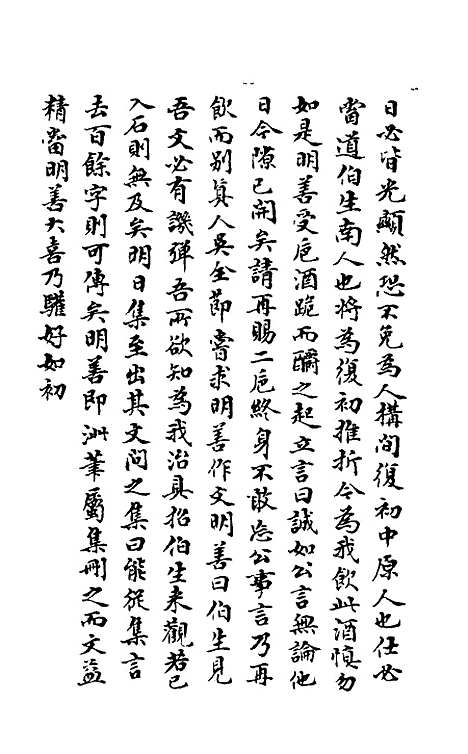 日必皆光顯然恐不免為人構間復初中原人也仕必
當道伯生南人也將為復初摧折今為我飲此酒慎勿
如是明善受巵酒跪而釂之起立言曰誠如公言無論他
日今隙已開矣請再賜二巵終身不敢忘公事言乃再
飲而別真人吳全節嘗求明善作文明善曰伯生見
吾文必有譏彈吾所欲知為我治具招伯生来觀若已
入石則無及矣明日集至出其文問之集曰能從集言
去百餘字則可傳矣明善即泚筆屬集刪之而文益
精當明善大喜乃驩好如初